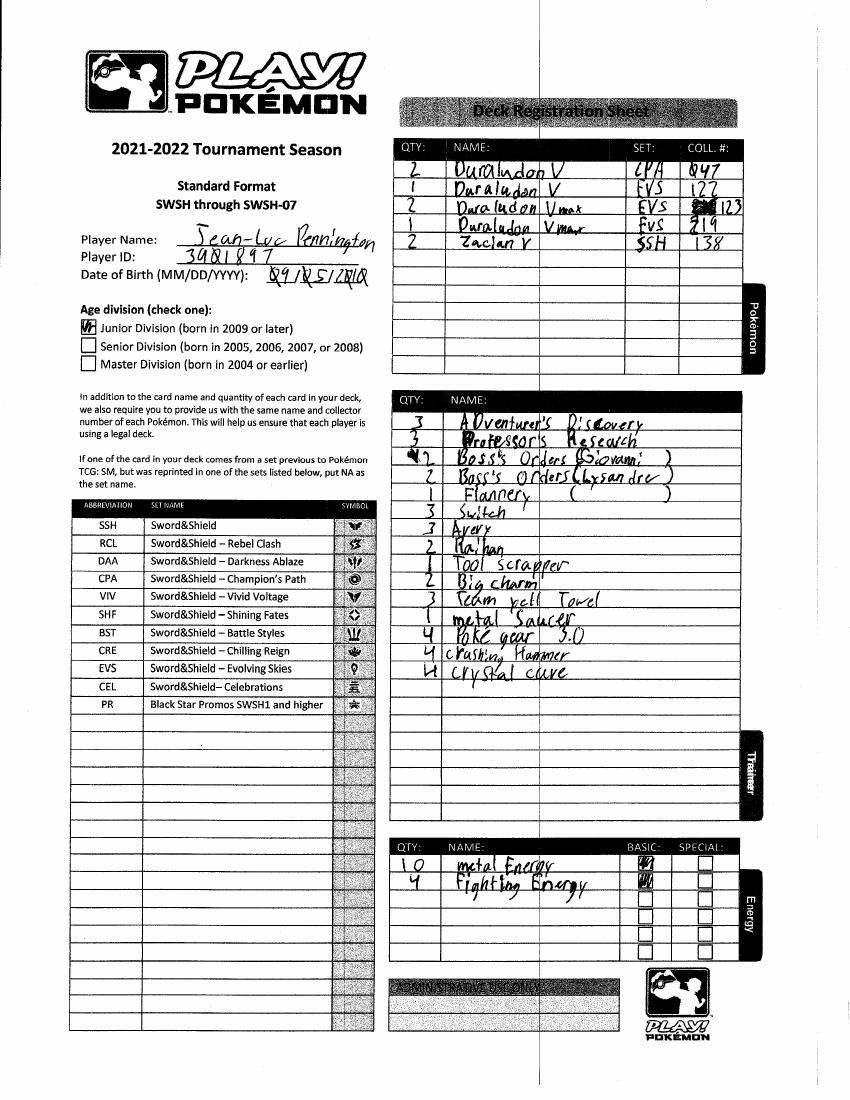 PLAY!
POKÉMON
Deck Registration Sheet
2021-2022 Tournament Season
Standard Format
SWSH through SWSH-07
Player Name: Jean-Luc Pennington
Player ID: 3901897
Date of Birth (MM/DD/YYYY): 09/05/2010
Age division (check one):
Junior Division (born in 2009 or later)
Senior Division (born in 2005, 2006, 2007, or 2008)
Master Division (born in 2004 or earlier)
In addition to the card name and quantity of each card in your deck,
we also require you to provide us with the same name and collector
number of each Pokémon. This will help us ensure that each player is
using a legal deck.
If one of the card in your deck comes from a set previous to Pokémon
TCG: SM, but was reprinted in one of the sets listed below, put NA as
the set name.
ABBREVIATION SET NAME SYMBOL
SSH Sword&Shield
RCL Sword&Shield – Rebel Clash
DAA Sword&Shield – Darkness Ablaze
CPA Sword&Shield – Champion's Path
VIV Sword&Shield – Vivid Voltage
SHF Sword&Shield – Shining Fates
BST Sword&Shield – Battle Styles
CRE Sword&Shield – Chilling Reign
EVS Sword&Shield – Evolving Skies
CEL Sword&Shield– Celebrations
PR Black Star Promos SWSH1 and higher
QTY: NAME: SET: COLL. #:
2 Duraludon V CPA 047
1 Duraludon V EVS 122
2 Duraludon Vmax EVS 123
1 Duraludon Vmax EVS 219
2 Zacian V SSH 138
Pokémon
QTY: NAME:
3 ADventurer's Discovery
3 Professor's Research
2 Boss's Orders (Giovanni)
2 Boss's Orders (Lysandre)
1 Flannery ( )
3 Switch
3 Avery
2 Raihan
1 Tool scrapper
2 Big charm
3 Team yell Towel
1 metal Saucer
4 Poké gear 3.0
4 crushing Hammer
4 crystal cave
Trainer
QTY: NAME: BASIC: SPECIAL:
10 metal Energy
4 Fighting Energy
Energy
ADMINISTRATIVE USE ONLY
PLAY!
POKÉMON